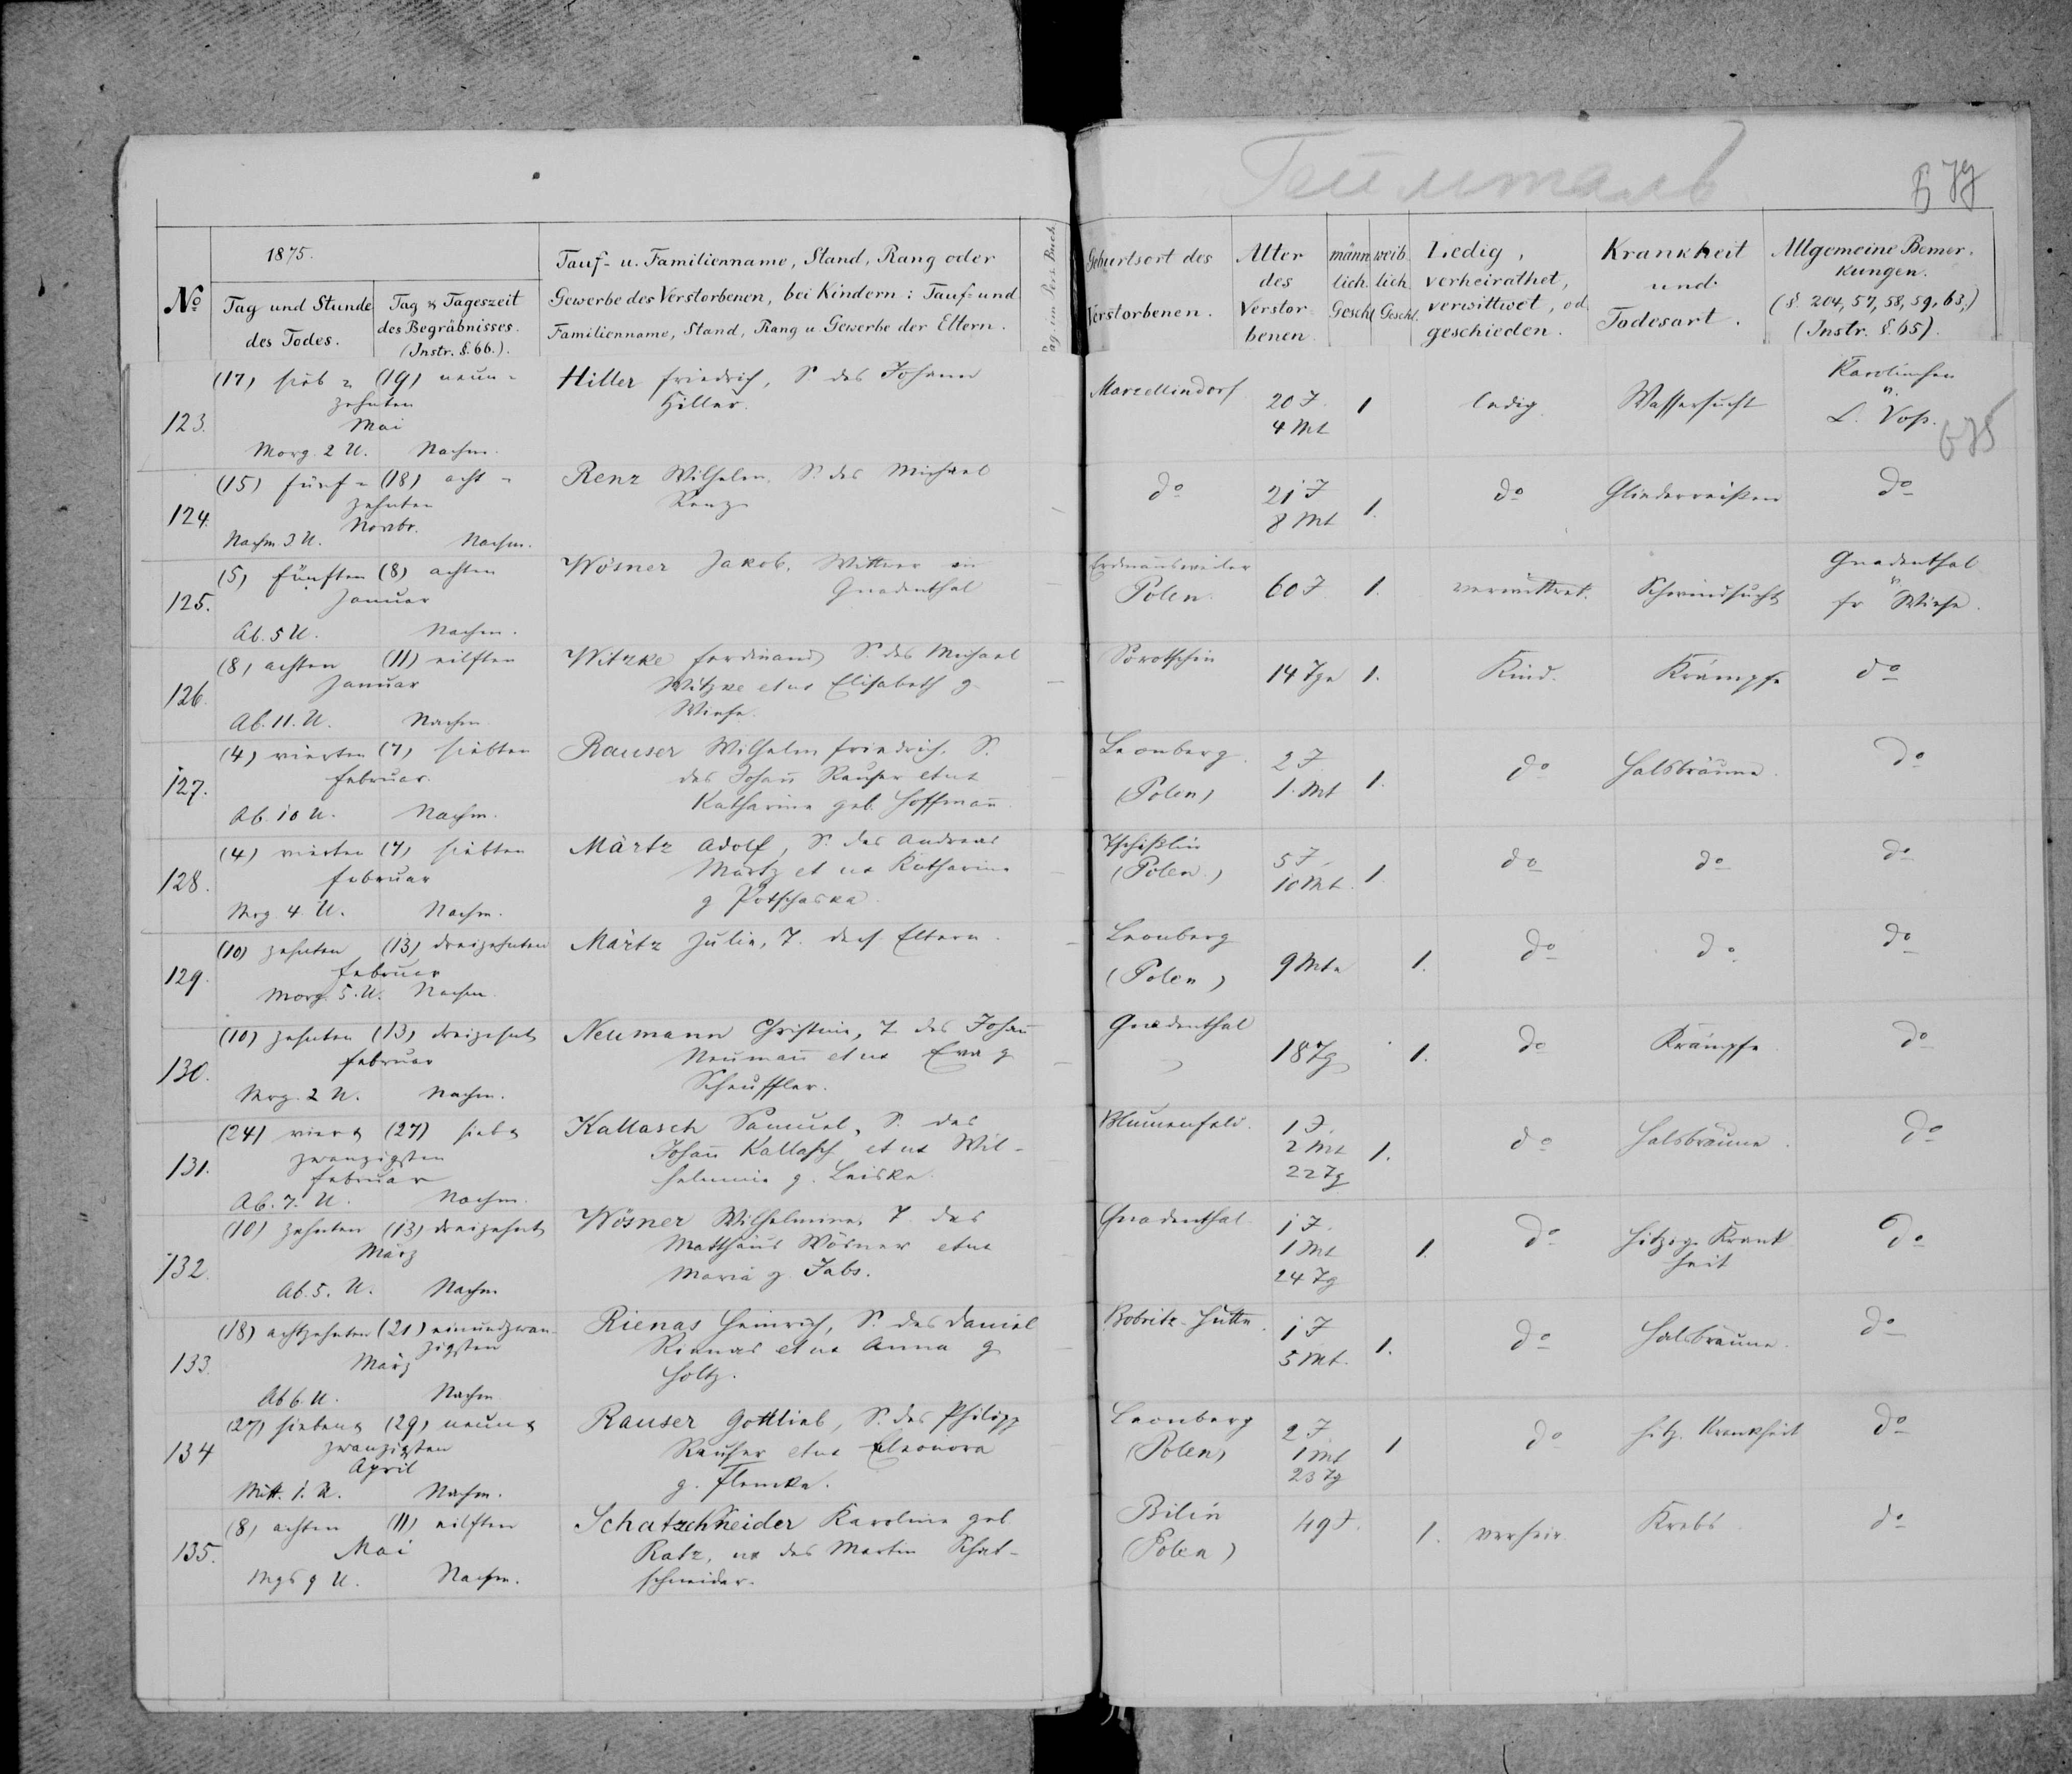 Геймталь
677
1875.
No
Tag und Stunde des Todes.
Tag u. Tageszeit des Begräbnisses. (Instr. §. 66.).
Tauf- u. Familienname, Stand, Rang oder
Gewerbe des Verstorbenen, bei Kindern: Tauf- und
Familienname, Stand, Rang u. Gewerbe der Eltern.
Pag. im Pers. Buch.
Geburtsort des Verstorbenen.
Alter des Verstorbenen.
männlich. Geschl.
weiblich. Geschl.
Ledig, verheirathet, verwittwet, od. geschieden.
Krankheit und Todesart.
Allgemeine Bemerkungen. (§ 204, 57, 58, 59, 63,) (Instr. §. 65).
123.
(17) sieb= (19) neun=
zehnten
Mai
Morg. 2 U. Nachm.
Hiller Friedrich, S. des Johann
Hiller.
Marzellindorf
20 J.
4 Mt
1
ledig
Wassersucht
Karolinchen
v.
L. Voß.
675
124.
(15) fünf= (18) acht=
zehnten
Novbr.
Nachm. 3 U. Nachm.
Renz Wilhelm, S. des Michael
Renz
do
21 J
8 Mt
1.
do
Gliederreißen
do
125.
(5) fünften (8) achten
Januar
Ab. 5 U. Nachm.
Wösner Jakob, Wittwer in
Gnadenthal
Erdmannsweiler
Polen.
60 J
1.
verwittwet.
Schwindsucht
Gnadenthal
v.
Fr Wiese.
126.
(8) achten (11) eilften
Januar
Ab. 11. U. Nachm
Witzke Ferdinand S. des Michael
Witzke et ux Elisabeth g.
Wiese.
Sorotschin
14 Tge
1.
Kind.
Krämpfe
do
127.
(4) vierten (7) siebten
Februar.
Ab. 10 U. Nachm.
Rauser Wilhelm Friedrich. S.
des Johann Rauser et ux
Katharina geb. Hoffmann.
Leonberg
(Polen)
2 J
1. Mt
1.
do
Halsbräune.
do
128.
(4) vierten (7) siebten
Februar
Mrg 4. U. Nachm.
Märtz Adolf, S. des Andreas
Märtz et ux Katharina
g Potschaska.
Tschißlin
(Polen)
5 J.
10 Mt.
1.
do
do
do
129.
(10) zehnten (13) dreizehnten
Februar
Morg. 5. U. Nachm.
Märtz Julie, T. ders. Eltern.
Leonberg
(Polen)
9 Mte
1.
do
do
do
130.
(10) zehnten (13) dreizehnt
Februar
Mrg. 2 U. Nachm.
Neumann Christine, T. des Johann
Neumann et ux Eva g
Scheuffler.
Gnadenthal
18 Tg
1.
do
Krämpfe
do
131.
(24) vier& (27) sieb&
zwanzigsten
Februar
Ab. 7. U. Nachm.
Kallasch Samuel, S. des
Johann Kallasch et ux Wil-
helmine g. Leiske.
Blumenfeld.
1 J.
2 Mt
22 Tg
1.
do
Halsbräune.
do
132.
(10) zehnten (13) dreizehnt
März
Ab. 5. U. Nachm
Wösner Wilhelmine, T. des
Matthäus Wösner et ux
Maria g. Jabs.
Gnadenthal.
1 J.
1 Mt
24 Tg
1.
do
Hitzige Krank
heit
do
133.
(18) achtzehnten (21) einundzwan-
zigsten
März
Ab 6. U. Nachm
Rienas Heinrich, S. des Daniel
Rienas et ux Anna g
Holtz.
Bobritz-Hütte.
1 J
5 Mt.
1.
do
Halsbräune.
do
134
(27) sieben& (29) neun&
zwanzigsten
April
Mitt. 1. U. Nachm.
Rauser Gottlieb, S. des Philipp
Rauser et ux Eleonora
g. Flemke.
Leonberg
(Polen)
2 J.
1 Mt
23 Tg
1
do
Hitz. Krankheit
do
135.
(8) achten (11) eilften
Mai
Mgs 9 U. Nachm.
Schatzschneider Karoline geb
Ratz, ux des Martin Schat-
schneider.
Bilin
(Polen)
49 J.
1.
verheir.
Krebs
do